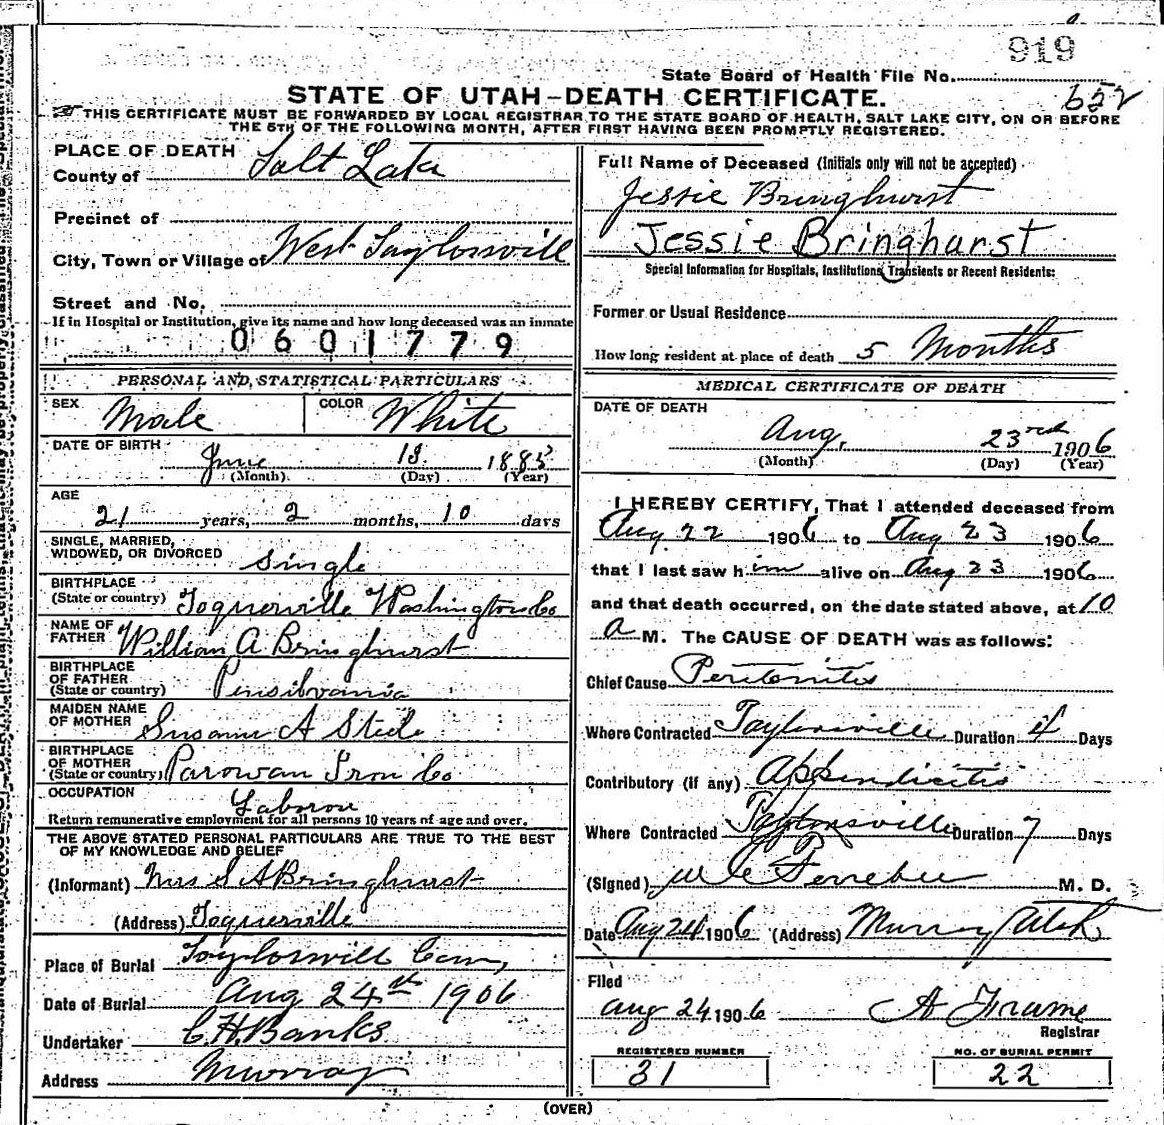 919
State Board of Health File No.
652
STATE OF UTAH-DEATH CERTIFICATE.
THIS CERTIFICATE MUST BE FORWARDED BY LOCAL REGISTRAR TO THE STATE BOARD OF HEALTH, SALT LAKE CITY, ON OR BEFORE
THE 5TH OF THE FOLLOWING MONTH, AFTER FIRST HAVING BEEN PROMPTLY REGISTERED.
PLACE OF DEATH
County of Salt Lake
Precinct of
City, Town or Village of West Taylorsvill
Street and No.
If in Hospital or Institution, give its name and how long deceased was an inmate
0601779
PERSONAL AND STATISTICAL PARTICULARS
SEX Male COLOR White
DATE OF BIRTH June 13 1885
(Month) (Day) (Year)
AGE
21 years, 2 months, 10 days
SINGLE, MARRIED,
WIDOWED, OR DIVORCED Single
BIRTHPLACE
(State or country) Toquerville Washington Co
NAME OF
FATHER William A Bringhurst
BIRTHPLACE
OF FATHER
(State or country) Pensilvania
MAIDEN NAME
OF MOTHER Susann A Steele
BIRTHPLACE
OF MOTHER
(State or country) Parowan Iron Co
OCCUPATION Laboror
Return remunerative employment for all persons 10 years of age and over.
THE ABOVE STATED PERSONAL PARTICULARS ARE TRUE TO THE BEST
OF MY KNOWLEDGE AND BELIEF
(Informant) Mrs S A Bringhurst
(Address) Toquerville
Place of Burial Taylorsvill Cem,
Date of Burial Aug 24th 1906
Undertaker C. H. Banks
Address Murray
Full Name of Deceased (Initials only will not be accepted)
Jessie Bringhurst
Jessie Bringharst
Special Information for Hospitals, Institutions, Transients or Recent Residents:
Former or Usual Residence
How long resident at place of death 5 Months
MEDICAL CERTIFICATE OF DEATH
DATE OF DEATH
Aug. 23rd 1906
(Month) (Day) (Year)
I HEREBY CERTIFY, That I attended deceased from
Aug 22 1906 to Aug 23 1906
that I last saw him alive on Aug 23 1906
and that death occurred, on the date stated above, at 10
a M. The CAUSE OF DEATH was as follows:
Chief Cause Peritonitis
Where Contracted Taylorsville Duration 4 Days
Contributory (if any) Appendicitis
Where Contracted Taylorsville Duration 7 Days
(Signed) M. D.
Date Aug 24 1906 (Address) Murray Utah
Filed
Aug 24 1906 A Frame
Registrar
REGISTERED NUMBER
31
NO. OF BURIAL PERMIT
22
(OVER)